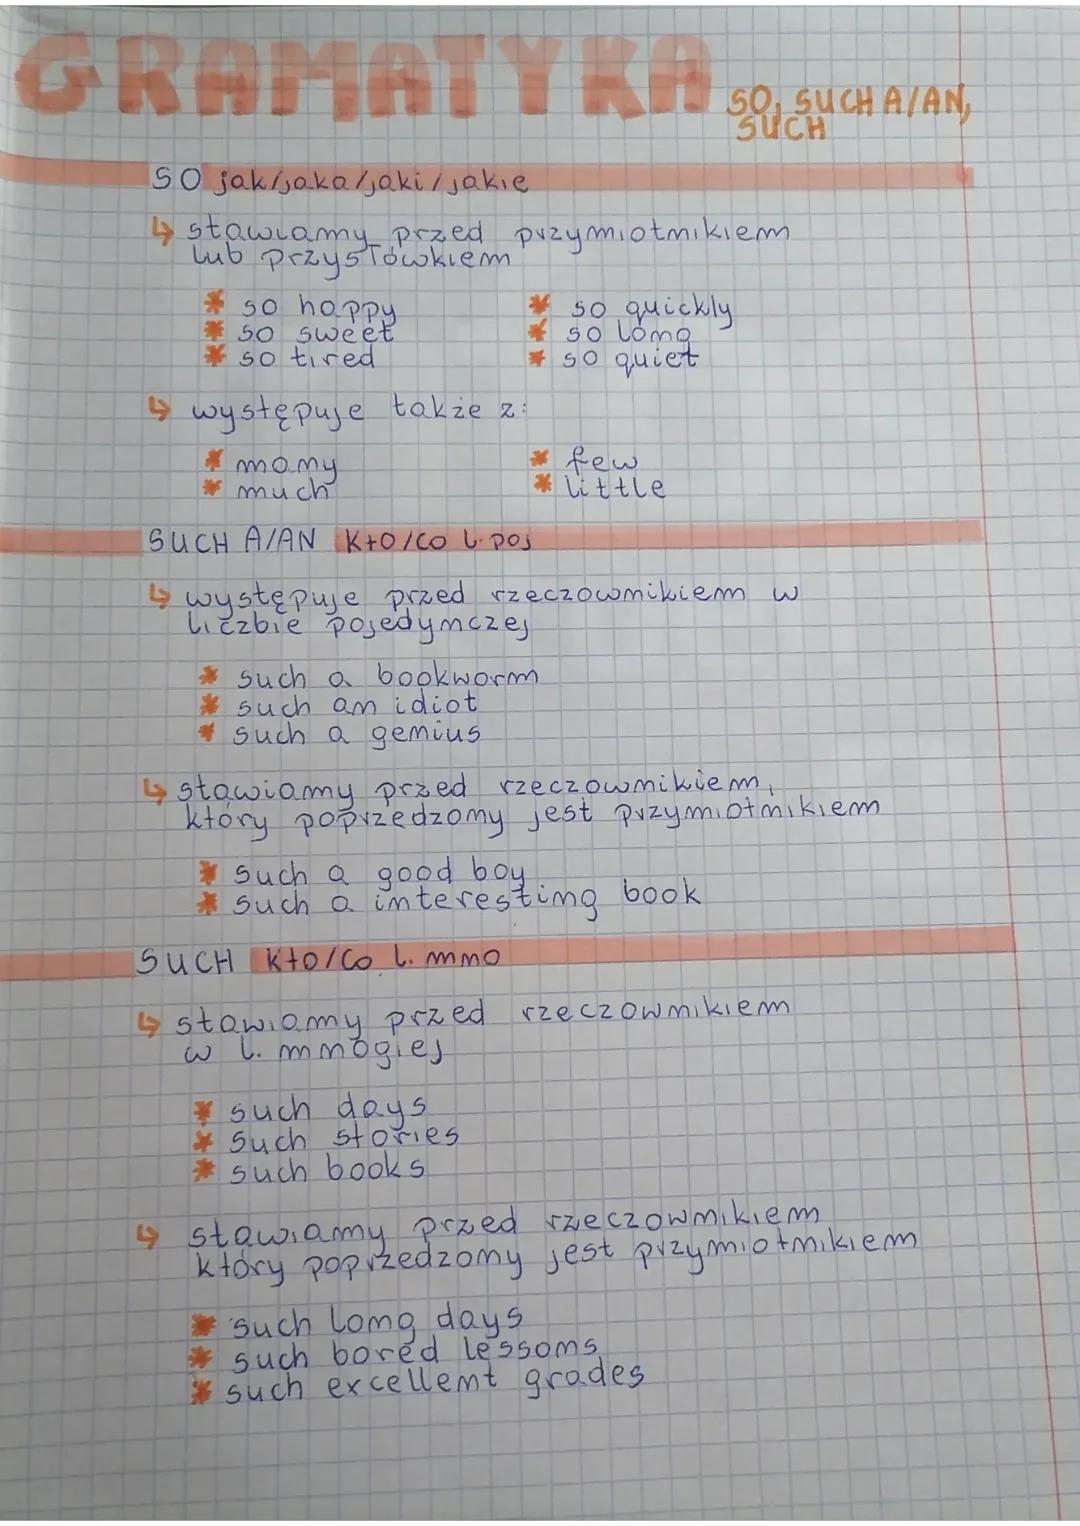 GRAMATYKA SO, SUCH A/AN,
SUCH
SO jak/jaka/jaki/jakie
↳ stawiamy przed przymiotnikiem
lub przysłówkiem
* so happy
* so sweet
* so tired
* so quickly
* so long
* so quiet
↳ występuje także z:
* many
* much
* few
* little
SUCH A/AN kto/co l. poj
↳ występuje przed rzeczownikiem w
liczbie pojedynczej
* such a bookworm
* such an idiot
* such a genius
↳ stawiamy przed rzeczownikiem,
który poprzedzony jest przymiotnikiem
* such a good boy
* such a interesting book
SUCH kto/co l. mno
↳ stawiamy przed rzeczownikiem
w l. mnogiej
* such days
* such stories
* such books
↳ stawiamy przed rzeczownikiem
który poprzedzony jest przymiotnikiem
* such long days
* such bored lessons
* such excellent grades